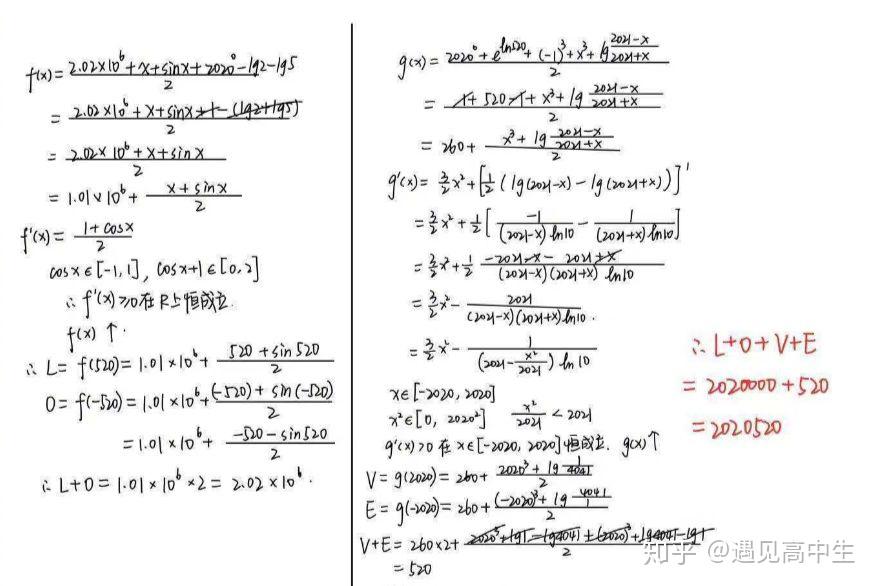 f(x) = (2.02×10⁶ + x + sinx + 2020⁰ - lg2 - lg5)/2
= (2.02×10⁶ + x + sinx + 1 - (lg2+lg5))/2
= (2.02×10⁶ + x + sinx)/2
= 1.01×10⁶ + (x + sinx)/2
f'(x) = (1 + cosx)/2
cosx∈[-1,1], cosx+1∈[0,2]
∴ f'(x)≥0在R上恒成立.
f(x)↑.
∴ L = f(520) = 1.01×10⁶ + (520 + sin520)/2
O = f(-520) = 1.01×10⁶ + ((-520) + sin(-520))/2
= 1.01×10⁶ + (-520 - sin520)/2
∴ L+O = 1.01×10⁶×2 = 2.02×10⁶.
g(x) = (2020⁰ + e^(ln520) + (-1)³ + x³ + lg (2021-x)/(2021+x))/2
= (1 + 520 - 1 + x³ + lg (2021-x)/(2021+x))/2
= 260 + (x³ + lg (2021-x)/(2021+x))/2
g'(x) = 3/2 x² + [1/2 (lg(2021-x) - lg(2021+x))]'
= 3/2 x² + 1/2 [-1/((2021-x)ln10) - 1/((2021+x)ln10)]
= 3/2 x² + 1/2 (-2021-x-2021+x)/((2021-x)(2021+x)ln10)
= 3/2 x² - 2021/((2021-x)(2021+x)ln10).
= 3/2 x² - 1/((2021 - x²/2021) ln10)
x∈[-2020, 2020]
x²∈[0, 2020²] x²/2021 < 2021
g'(x)>0在x∈[-2020, 2020]恒成立. g(x)↑
V = g(2020) = 260 + (2020³ + lg 1/4041)/2
E = g(-2020) = 260 + ((-2020)³ + lg 4041/1)/2
V+E = 260×2 + (2020³ + lg1 - lg4041 + (-2020)³ + lg4041 - lg1)/2
= 520
∴ L+O+V+E
= 2020000+520
= 2020520
知乎 @遇见高中生